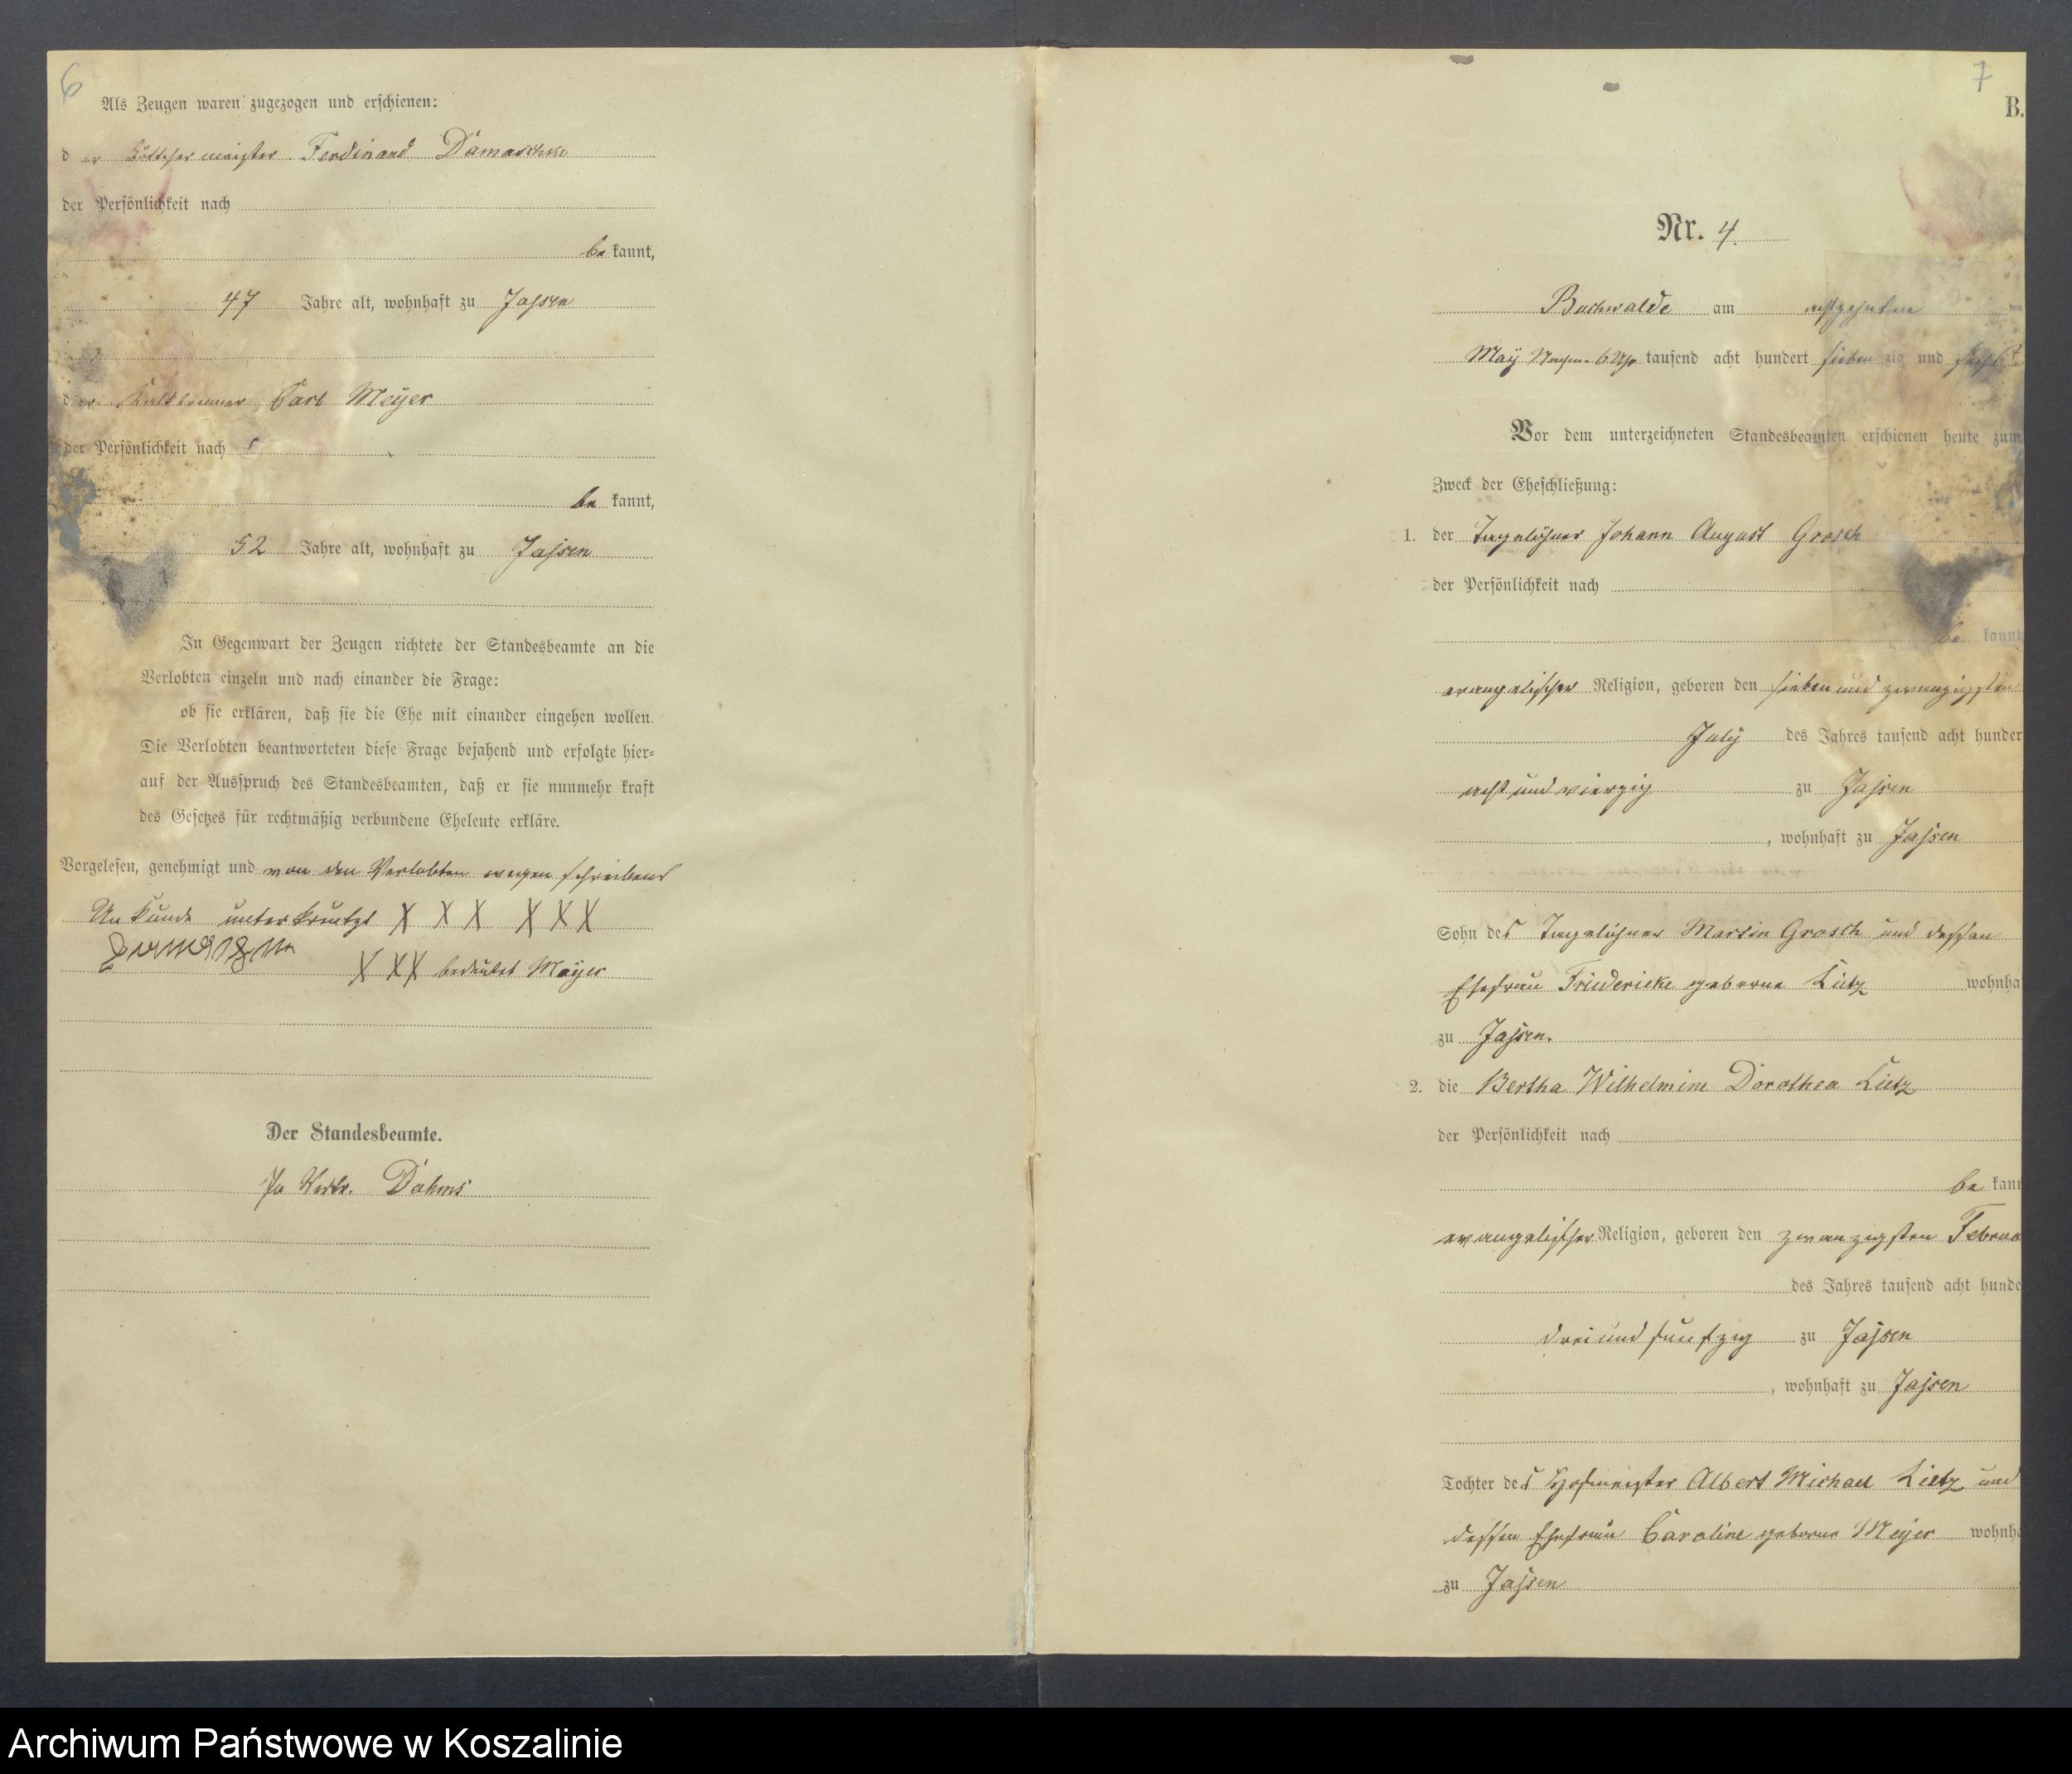 6
Als Zeugen waren zugezogen und erschienen:
der Böttchermeister Ferdinand Damaschke
der Persönlichkeit nach
be kannt,
47 Jahre alt, wohnhaft zu Jassen
der Carl Meyer
der Persönlichkeit nach
be kannt,
52 Jahre alt, wohnhaft zu Jassen
In Gegenwart der Zeugen richtete der Standesbeamte an die
Verlobten einzeln und nach einander die Frage:
ob sie erklären, daß sie die Ehe mit einander eingehen wollen.
Die Verlobten beantworteten diese Frage bejahend und erfolgte hier=
auf der Ausspruch des Standesbeamten, daß er sie nunmehr kraft
des Gesetzes für rechtmäßig verbundene Eheleute erkläre.
Vorgelesen, genehmigt und von den Verlobten wegen schreibens
Unkunde unterkreutzt XXX XXX
XXX bedeutet Meyer
Der Standesbeamte.
In Vertr. Dahms
7
B.
Nr. 4.
Buchwalde am achtzehnten
May Nachm. 6 Uhr tausend acht hundert siebenzig und sechs
Vor dem unterzeichneten Standesbeamten erschienen heute zum
Zweck der Eheschließung:
1. der Tagelöhner Johann August Grosch
der Persönlichkeit nach
be kannt
evangelischer Religion, geboren den sieben und zwanzigsten
July des Jahres tausend acht hunder
acht und vierzig zu Jassen
, wohnhaft zu Jassen
Sohn des Tagelöhner Martin Grosch und dessen
Ehefrau Friedericke geborne Lietz wohnha
zu Jassen.
2. die Bertha Wilhelmine Dorothea Lietz
der Persönlichkeit nach
be kann
evangelischer Religion, geboren den zwanzigsten Februa
des Jahres tausend acht hunde
drei und funfzig zu Jassen
, wohnhaft zu Jassen
Tochter des Hofmeister Albert Michael Lietz und
dessen Ehefrau Caroline geborne Meyer wohnha
zu Jassen
Archiwum Państwowe w Koszalinie